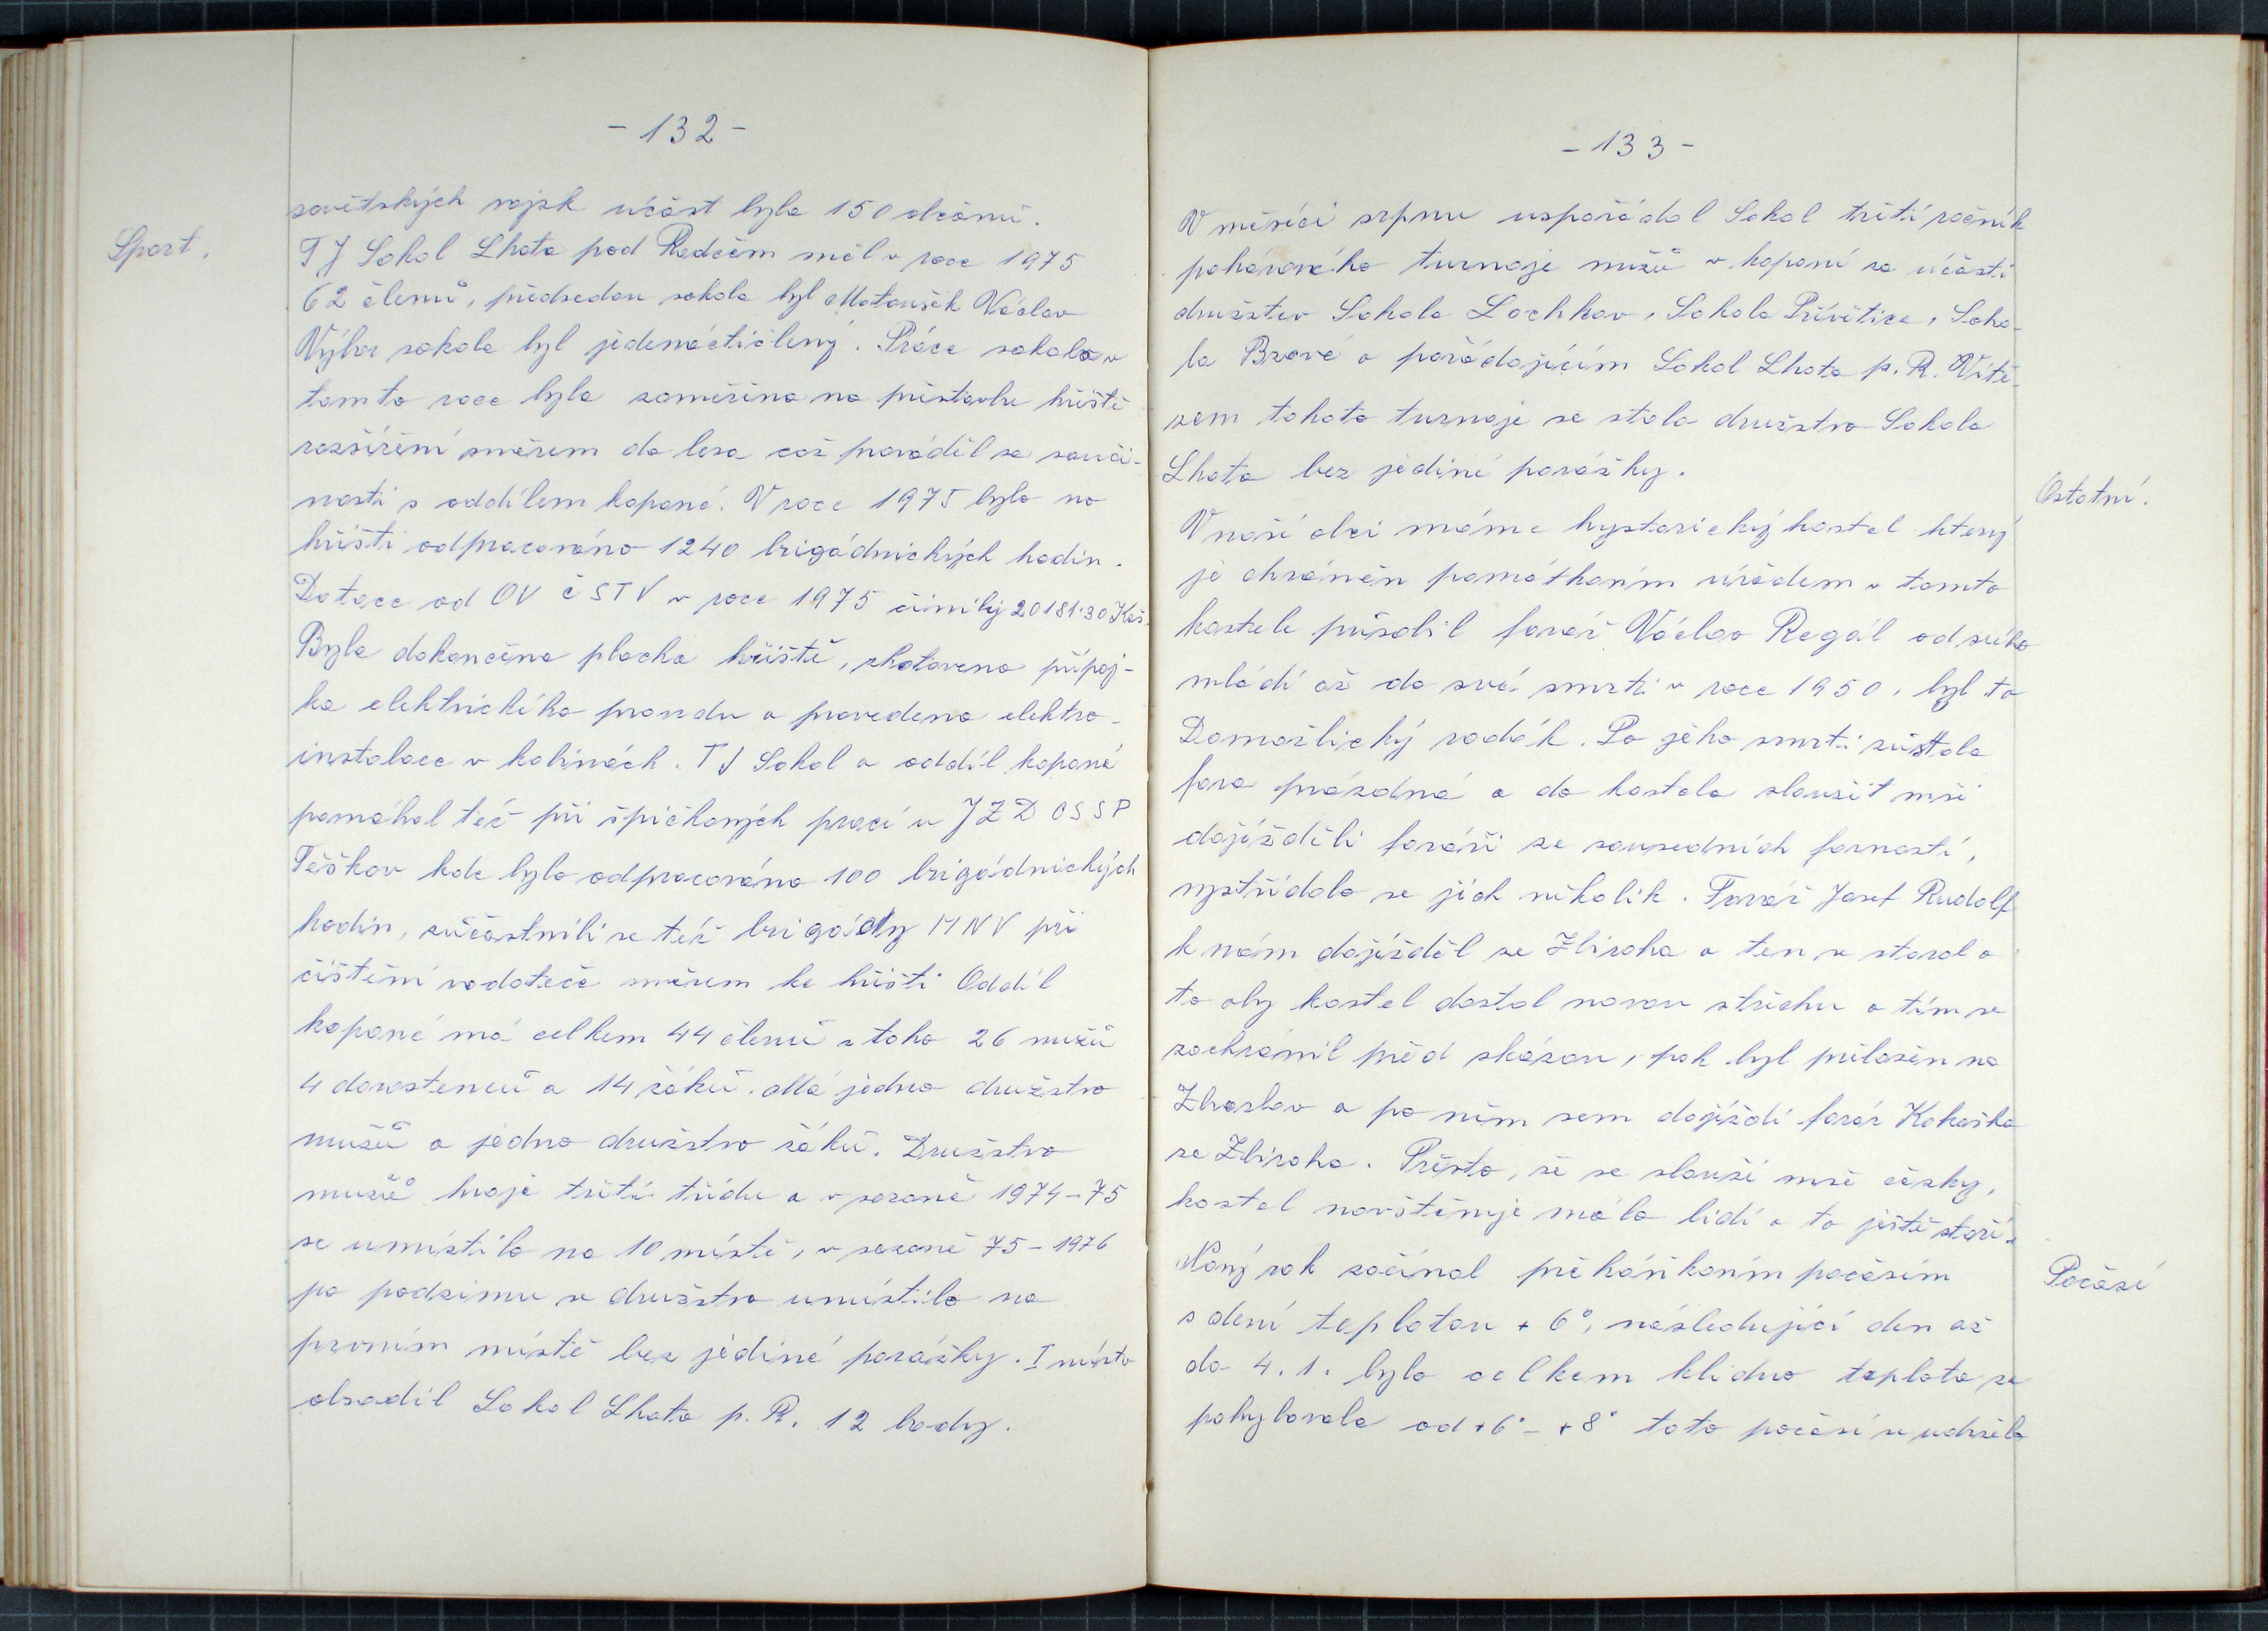 - 132 -
sovětských vojsk účast byla 150 občanů.
Sport.
TJ Sokol Lhota pod Radčem měl v roce 1975
62 členů, předsedou sokola byl Matoušek Václav
Výbor sokola byl jedenáctičlený. Práce sokola v
tomto roce byla zaměřena na přístavbu hřiště
rozšíření směrem do lesa což prováděl ve souči-
nosti s oddílem kopané. V roce 1975 bylo na
hřišti odpracováno 1240 brigádnických hodin.
Dotace od OV ČSTV v roce 1975 činily 20181·30 Kčs.
Byla dokončena plocha hřiště, zhotovena přípoj-
ka elektrického proudu a provedena elektro-
instalace v kabinách. TJ Sokol a oddíl kopané
pomáhal též při špičkových prací v JZD ČSSP
Těškov kde bylo odpracováno 100 brigádnických
hodin, zúčastnili se též brigády MNV při
čištění vodoteče směrem ke hřišti Oddíl
kopané má celkem 44 členů z toho 26 mužů
4 dorostenců a 14 žáků. Má jedno družstvo
mužů a jedno družstvo žáků. Družstvo
mužů hraje třetí třídu a v sezoně 1974-75
se umístilo na 10 místě, v sezoně 75-1976
po podzimu se družstvo umístilo na
prvním místě bez jediné porážky. I místo
obsadil Sokol Lhota p. R. 12 body.
- 133 -
V měsíci srpnu uspořádal Sokol třetí ročník
pohárového turnaje mužů v kopaní za účasti
družstev Sokola Lochkov, Sokola Přívětice, Soko-
la Brzové a pořádajícím Sokol Lhota p. R. Vítě-
zem tohoto turnaje se stalo družstvo Sokola
Lhota bez jediné porážky.
Ostatní.
V naší obci máme hystorický kostel který
je chráněn památkovím úřadem v tomto
kostele působil farář Václav Regál od svého
mládí až do své smrti v roce 1950, byl to
Domažlický rodák. Po jeho smrti zůstala
fara prázdná a do kostela sloužit mši
dojížděli faráři ze sousedních farností,
vystřídalo se jich několik. Farář Josef Rudolf
k nám dojížděl ze Zbiroha a ten se staral o
to aby kostel dostal novou střechu a tím se
zachránil před zkázou, pak byl přiložen na
Zbraslav a po něm sem dojíždí farář Kokaška
ze Zbiroha. Přesto, že se slouží mše česky,
kostel navštěvuje málo lidí a to ještě staří.
Počasí
Nový rok začínal přeháňkovím počasím
s dení teplotou + 6°, následující den až
do 4. 1. bylo celkem klidno teplota se
pohybovala od +6° - +8° toto počasí se udrželo